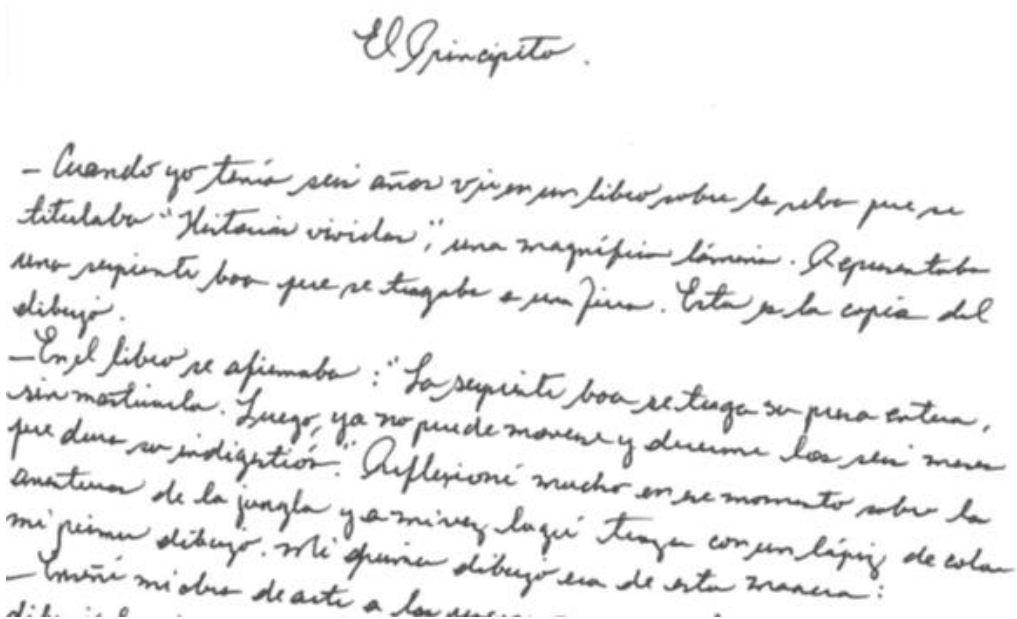 El Principito.
- Cuando yo tenía seis años vi en un libro sobre la selva que se
titulaba "Historias vividas", una magnífica lámina. Representaba
una serpiente boa que se tragaba a una fiera. Esta es la copia del
dibujo.
- En el libro se afirmaba: "La serpiente boa se traga su presa entera,
sin masticarla. Luego, ya no puede moverse y duerme los seis meses
que dura su indigestión". Reflexioné mucho en ese momento sobre las
aventuras de la jungla y a mi vez logré trazar con un lápiz de color
mi primer dibujo. Mi primer dibujo era de esta manera:
- Enseñé mi obra de arte a las